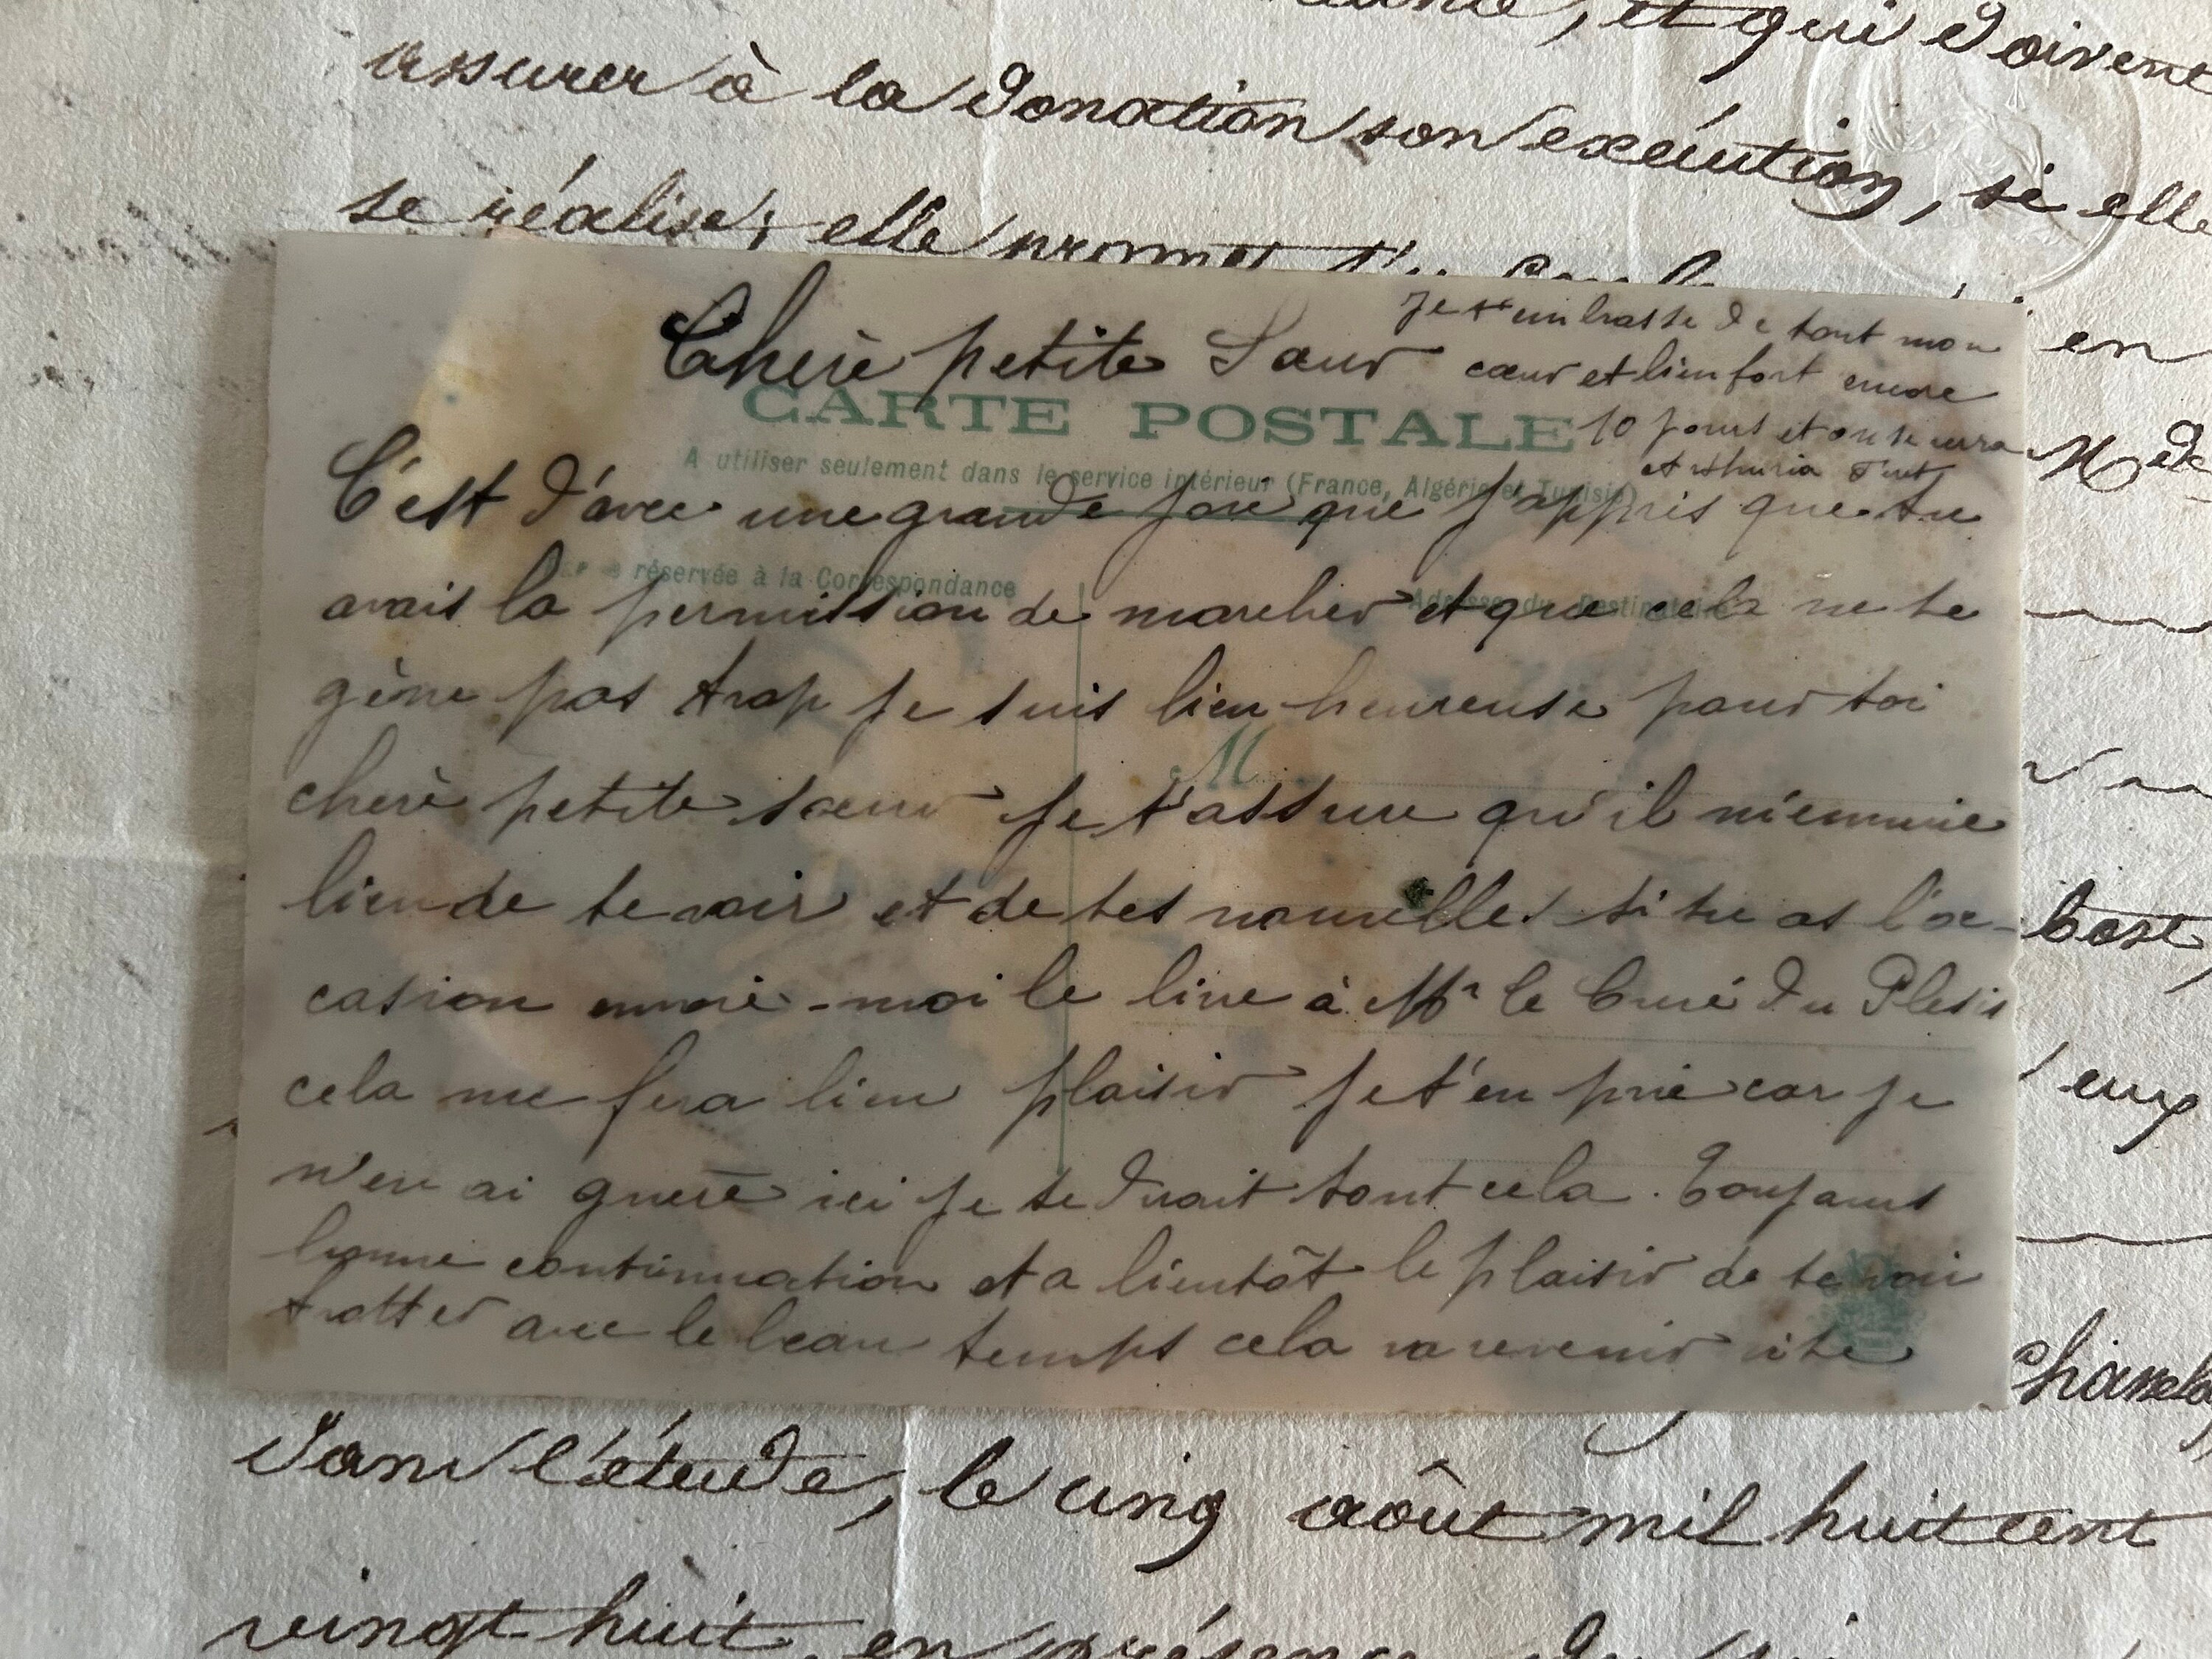 et qui doivent
assurer à la donation son exécution, si elle
se réalise; elle promet
Je t'embrasse de tout mon
cœur et bien fort encore
10 jours et on se verra
Chère petite Sœur
CARTE POSTALE
A utiliser seulement dans le service intérieur (France, Algérie et Tunisie)
C'est d'avec une grande joie que j'appris que tu
réservée à la Correspondance
Adresse du Destinataire
avais la permission de marcher et que cela ne te
gène pas trop je suis bien heureuse pour toi
M
cherè petite sœur je t'assure qu'il m'ennuie
bien de te voir et de tes nouvelles si tu as l'oc-
casion envoie-moi le livre à Mr le Curé du Plesis
cela me fera bien plaisir je t'en prie car je
n'en ai guère ici je te dirait tout cela. Toujours
bonne continuation et a bientôt le plaisir de te voir
trotter avec le beau temps cela va revenir vite
en
eux
dans l'étude, le cinq août mil huit cent
vingt huit, en présence du